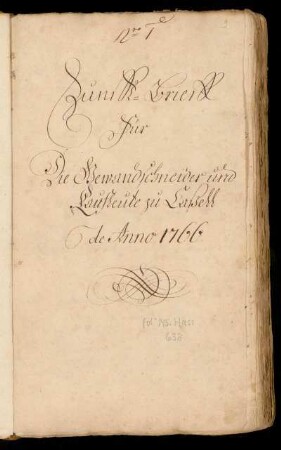 Zunfft-Brieff
Für
Die Gewandschneider und
Kaufleute zu Cassell
de Anno 1766